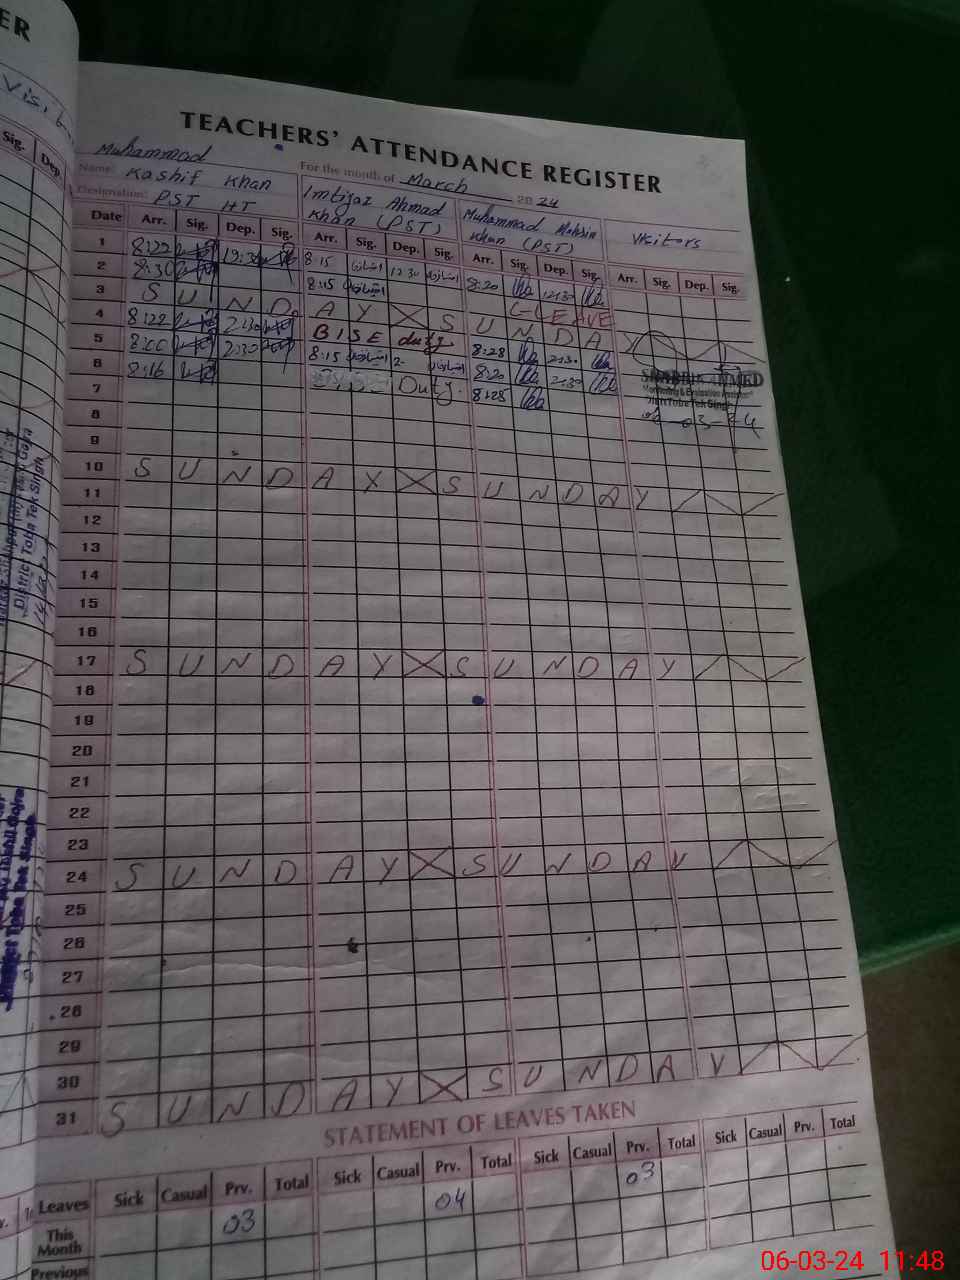 ER
Visit
Sig. Dep.
TEACHERS' ATTENDANCE REGISTER
Muhammad
Name: Kashif Khan
For the month of March 20 24
Designation: PST HT
Imtijaz Ahmad Khan (PST)
Muhammad Mohsin Khan (PST)
Visitors
Date Arr. Sig. Dep. Sig. Arr. Sig. Dep. Sig. Arr. Sig. Dep. Sig. Arr. Sig. Dep. Sig.
1 8:22 12:30 8:15 12:30 8:20 12:30
2 8:30 8:15 C-LEAVE
3 S U N D A Y X S U N D A Y
4 8:22 2:30 BISE duty 8:28 2:30
5 8:00 2:30 8:15 2- 8:20 2:30
6 8:16 Duty. 8:25
7
SHABBIR AHMED
Monitoring & Evaluation Assistant
Distt Toba Tek Singh
06-03-24
8
9
10 S U N D A Y X S U N D A Y
11
12
13
14
15
16
17 S U N D A Y X S U N D A Y
18
19
20
21
22
23
24 S U N D A Y X S U N D A Y
25
26
27
28
29
30
31 S U N D A Y X S U N D A Y
District Toba Tek Singh
STATEMENT OF LEAVES TAKEN
Leaves Sick Casual Prv. Total Sick Casual Prv. Total Sick Casual Prv. Total Sick Casual Prv. Total
This Month 03 04 03
Previous
06-03-24 11:48